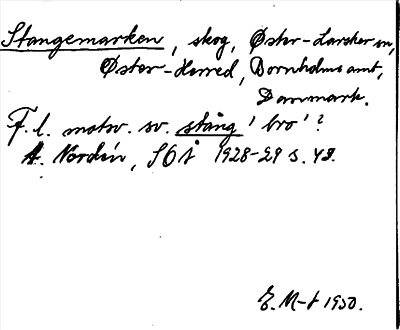 Stangemarken, skog, Øster-Larsker sn,
Øster-Herred, Bornholms amt,
Danmark.
F. l. motsv. sv. stång 'bro'?
A. Nordén, SOÅ 1928-29 s. 49.
E. M-t 1950.